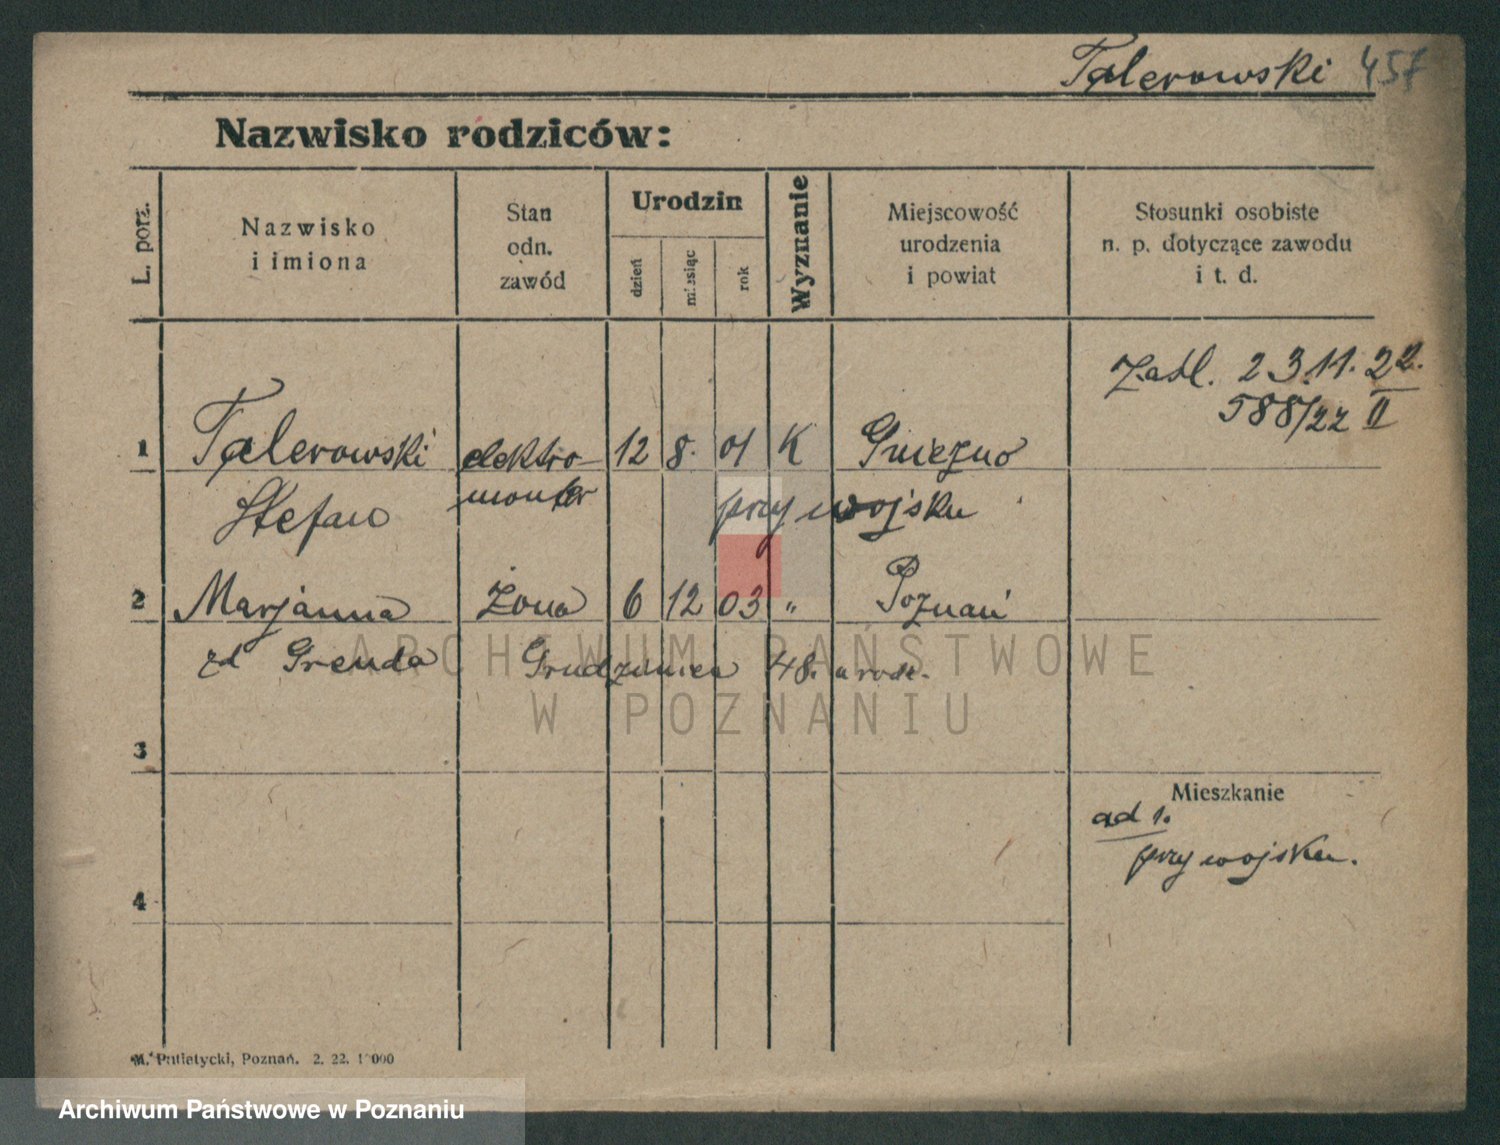 Talerowski 457
Nazwisko rodziców:
L. porz.
Nazwisko
i imiona
Stan
odn.
zawód
Urodzin
dzień
miesiąc
rok
Wyznanie
Miejscowość
urodzenia
i powiat
Stosunki osobiste
n. p. dotyczące zawodu
i t. d.
Zaśl. 23.11.22.
588/22 II
1 Talerowski elektro- 12 8. 01 K Gniezno
Stefan monter przy wojsku
2 Marjanna żona 6 12 03 " Poznań
zd Grenda 48. urodz.
3
Mieszkanie
ad 1.
przy wojsku.
4
M. Putiatycki, Poznań. 2. 22. 1 000
ARCHIWUM PAŃSTWOWE
W POZNANIU
Archiwum Państwowe w Poznaniu